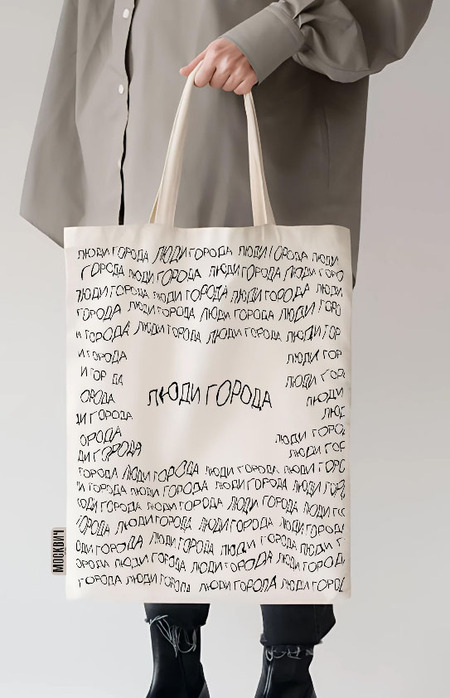 ЛЮДИ ГОРОДА ЛЮДИ ГОРОДА ЛЮДИ ГОРОДА ЛЮДИ
ГОРОДА ЛЮДИ ГОРОДА ЛЮДИ ГОРОДА ЛЮДИ ГОРО
ЛЮДИ ГОРОДА ЛЮДИ ГОРОДА ЛЮДИ ГОРОДА ЛЮДИ
ГОРОДА ЛЮДИ ГОРОДА ЛЮДИ ГОРОДА ЛЮДИ ГОР
И ГОРОДА ЛЮДИ ГОРОДА ЛЮДИ ГОРОДА ЛЮДИ ГОР
И ГОРОДА ЛЮДИ ГОР
И ГОРОДА ЛЮДИ ГОРО
ОРОДА ЛЮДИ
ДИ ГОРОДА ЛЮД
ЛЮДИ ГОРОДА
ОРОДА ЛЮДИ ГОРО
ДИ ГОРОДА ЛЮДИ ГОР
ГОРОДА ЛЮДИ ГОРОДА ЛЮДИ ГОРОДА ЛЮДИ ГОРО
И ГОРОДА ЛЮДИ ГОРОДА ЛЮДИ ГОРОДА ЛЮДИ ГОР
ЮДИ ГОРОДА ЛЮДИ ГОРОДА ЛЮДИ ГОРОДА ЛЮДИ ГО
ГОРОДА ЛЮДИ ГОРОДА ЛЮДИ ГОРОДА ЛЮДИ ГОРОДА
ОДИ ГОРОДА ЛЮДИ ГОРОДА ЛЮДИ ГОРОДА ЛЮДИ Г
ОРОДИ ЛЮДИ ГОРОДА ЛЮДИ ГОРОДА ЛЮДИ ГОРО
ГОРОДА ЛЮДИ ГОРОДА ЛЮДИ ГОРОДА ЛЮДИ ГОРО
МОСКВИЧ